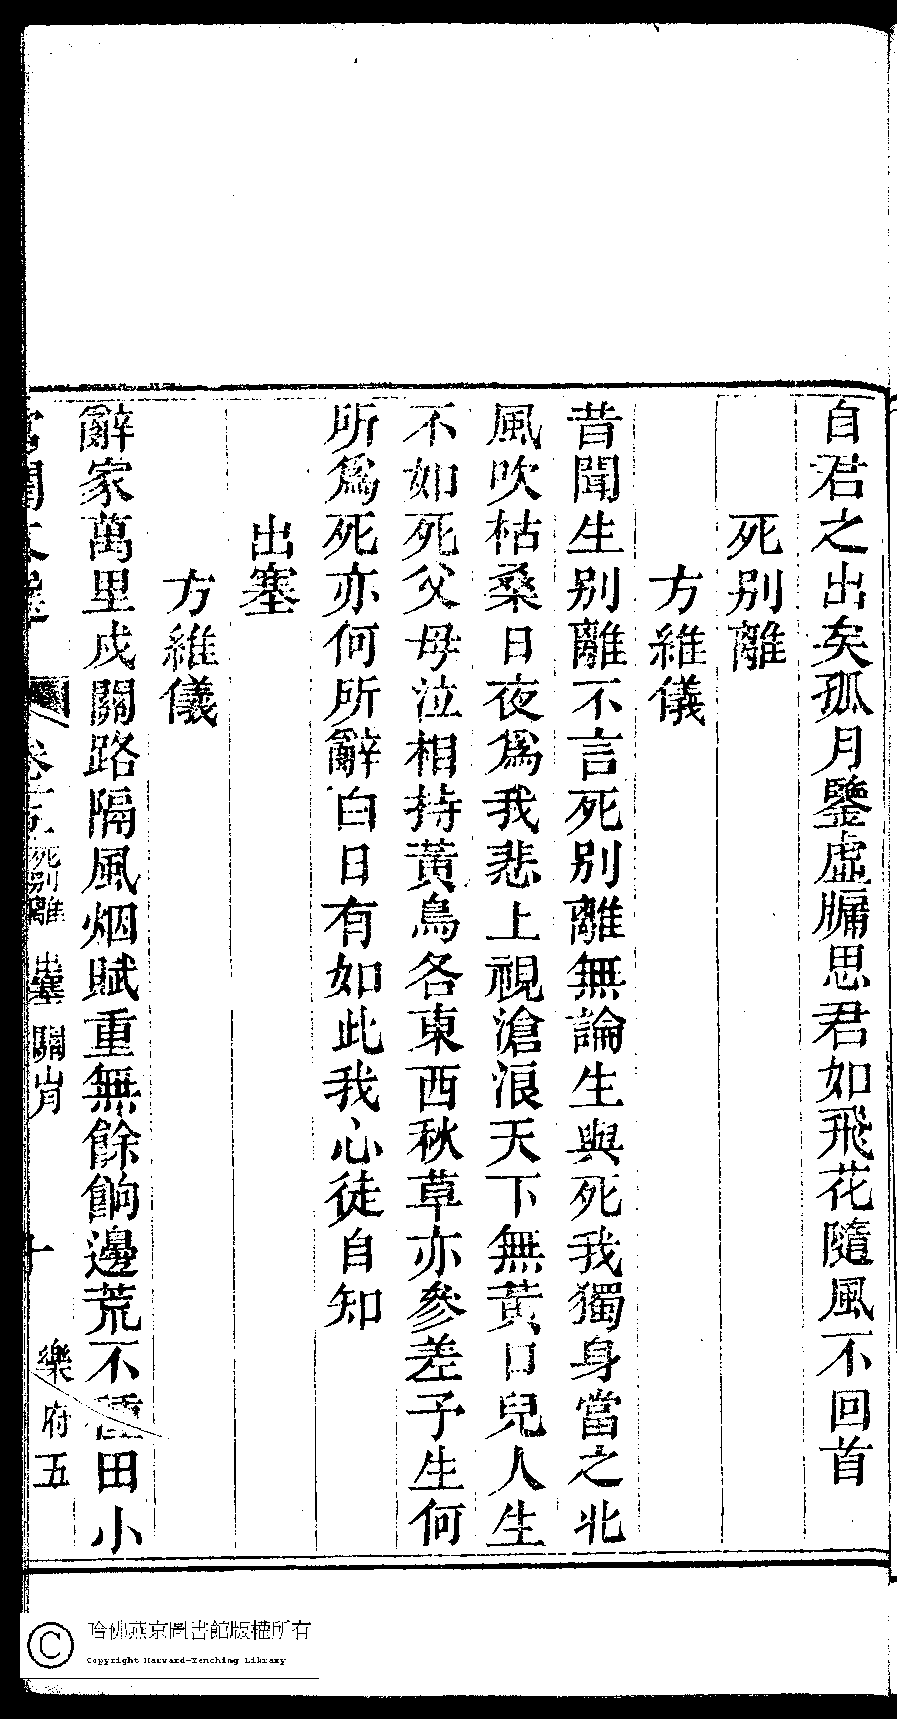 自君之出矣孤月鑒虛牖思君如飛花隨風不回首
死别離
方維儀
昔聞生别離不言死别離無論生與死我獨身當之北
風吹枯桑日夜爲我悲上視滄浪天下無黃口兒人生
不如死父母泣相持黃鳥各東西秋草亦參差子生何
所爲死亦何所辭白日有如此我心徒自知
出塞
方維儀
辭家萬里戍關路隔風烟賦重無餘餉邊荒不種田小
卷十五 死别離 出塞 關 十 樂府五
哈佛燕京圖書館版權所有
Copyright Harvard-Yenching Library